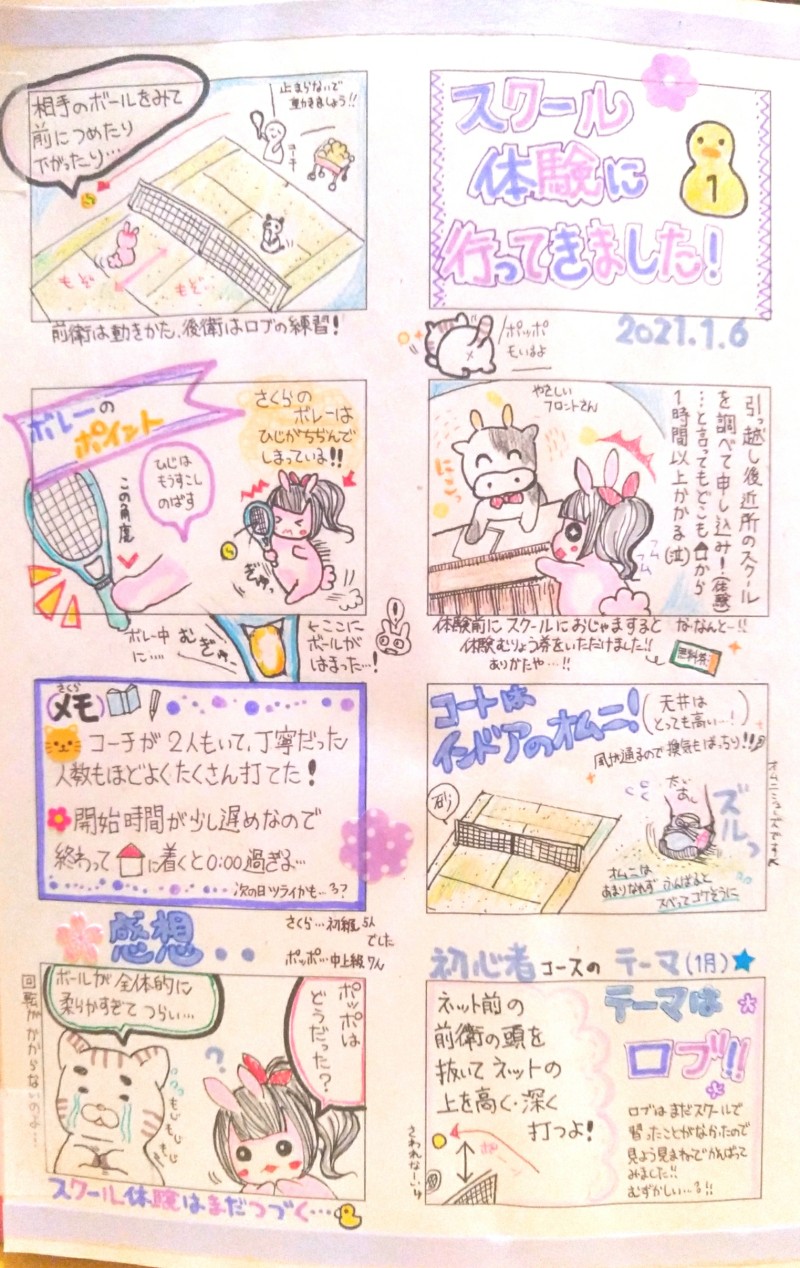 スクール
体験に
行ってきました！
1
2021.1.6
ポッポ
もいるよ
引っ越し後近所のスクール
を調べて申し込み！(体験)
…と言ってもどこも🏠から
1時間以上かかる(泣)
やさしい
フロントさん
にこっ
フム
フム
体験前にスクールにおじゃますると
体験むりょう券をいただけました!!
ありがたや…!!
な・なんと…!!
無料券
コートは
インドアのオムニ！
(天井は
とっても高い…！)
風が通るので換気もばっちり!!
砂
ズルっ
オムニシューズです
オムニは
あまりなれず ふんばると
スベってコケそうに
初心者コースのテーマ(1月)★
テーマは
ロブ!!
ネット前の
前衛の頭を
抜いてネットの
上を高く・深く
打つよ！
さわれなーい
ロブはまだスクールで
習ったことがなかったので
見よう見まねでがんばって
みました!!
むずかしい…!!
相手のボールをみて
前につめたり
下がったり…
止まらないで
動きましょう!!
コーチ
もぞ
もぞ…
前衛は動きかた、後衛はロブの練習！
ボレーの
ポイント
さくらの
ボレーは
ひじがちぢんで
しまっている!!
ひじは
もうすこし
のばす
この角度
ぎゅっ
ボレー中
に…
むぎゅー
ここに
ボールが
はまった…！
(さくら)
メモ
コーチが2人もいて、丁寧だった
人数もほどよくたくさん打てた！
開始時間が少し遅めなので
終わって🏠に着くと0:00過ぎる…
次の日ツライかも…？
感想
さくら…初級5人
でした
ポッポ…中上級7人
ポッポは
どうだった？
ボールが全体的に
柔らかすぎてつらい…
回転がかからないのよ…
もじ
もじ
もじ
スクール体験はまだつづく…